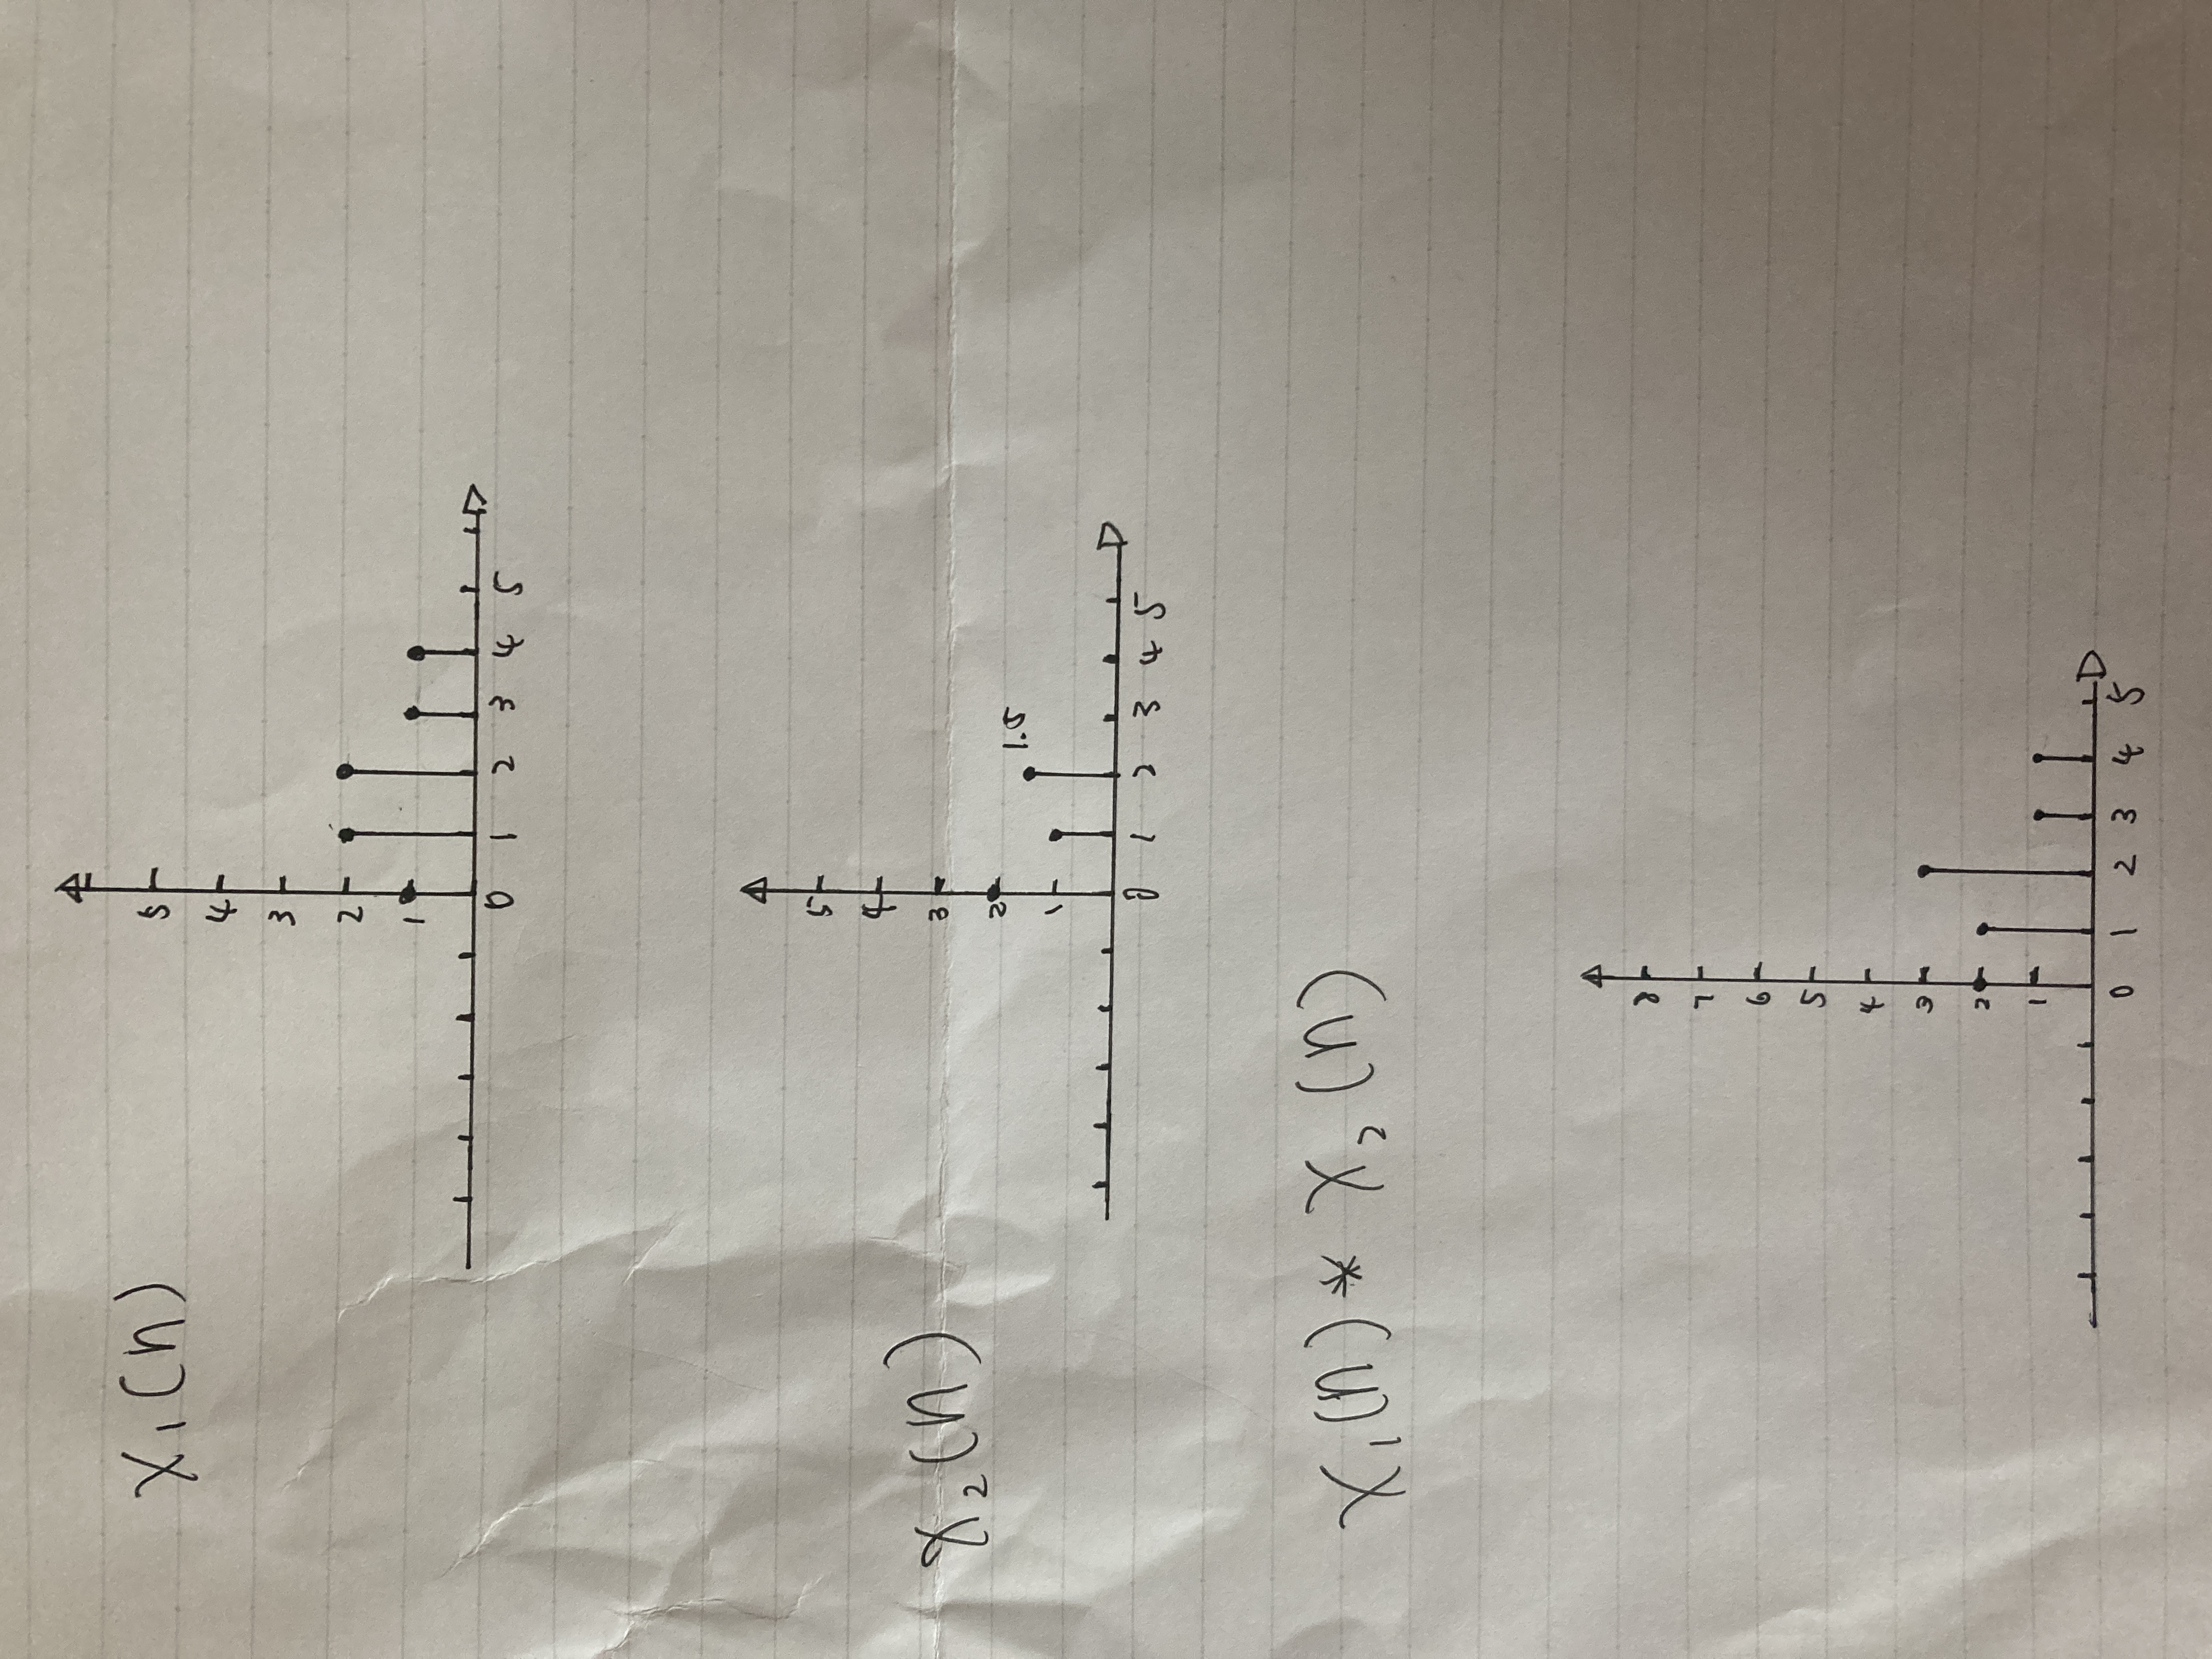 x₁(n)
5
4
3
2
1
0 1 2 3 4 5
x₂(n)
5
4
3
2
1
1.5
0 1 2 3 4 5
x₁(n) * x₂(n)
8
7
6
5
4
3
2
1
0 1 2 3 4 5